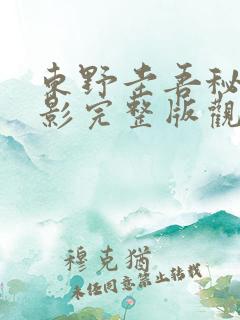 東野圭吾秘
影完整版觀
穆克猶
未经同意禁止转载